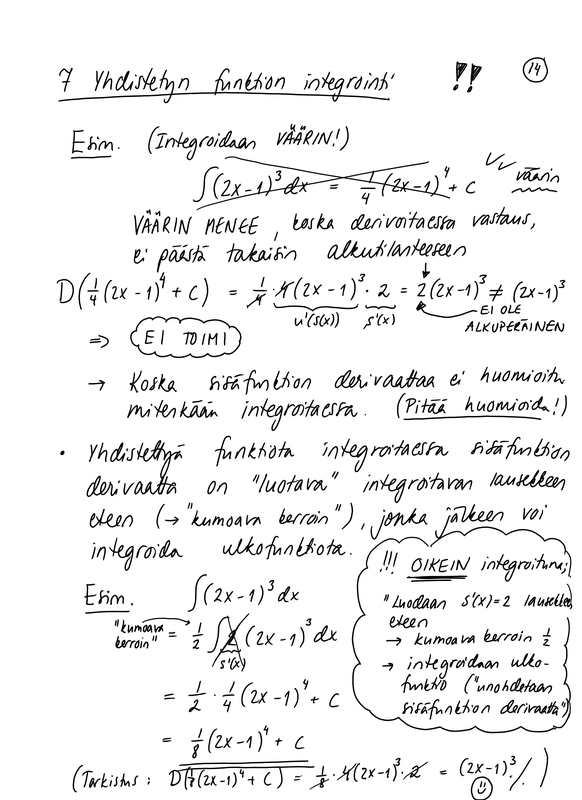 7 Yhdistetyn funktion integrointi !! 14
Esim. (Integroidaan VÄÄRIN!)
∫(2x-1)³dx = 1/4(2x-1)⁴ + C väärin
VÄÄRIN MENEE, koska derivoitaessa vastaus,
ei päästä takaisin alkutilanteeseen
D(1/4(2x-1)⁴ + C) = 1/4 · 4(2x-1)³ · 2 = 2(2x-1)³ ≠ (2x-1)³
u'(s(x)) s'(x) EI OLE
ALKUPERÄINEN
⇒ EI TOIMI
→ Koska sisäfunktion derivaattaa ei huomioitu
mitenkään integroitaessa. (Pitää huomioida!)
• Yhdistettyä funktiota integroitaessa sisäfunktion
derivaatta on "luotava" integroitavan lausekkeen
eteen (→ "kumoava kerroin"), jonka jälkeen voi
integroida ulkofunktiota.
!!! OIKEIN integroituna;
"Luodaan s'(x)=2 lausekkeen
eteen
→ kumoava kerroin 1/2
→ integroidaan ulko-
funktio ("unohdetaan
sisäfunktion derivaatta")
Esim. ∫(2x-1)³dx
"kumoava
kerroin" = 1/2 ∫2(2x-1)³dx
s'(x)
= 1/2 · 1/4(2x-1)⁴ + C
= 1/8(2x-1)⁴ + C
(Tarkistus: D(1/8(2x-1)⁴ + C) = 1/8 · 4(2x-1)³ · 2 = (2x-1)³!/)